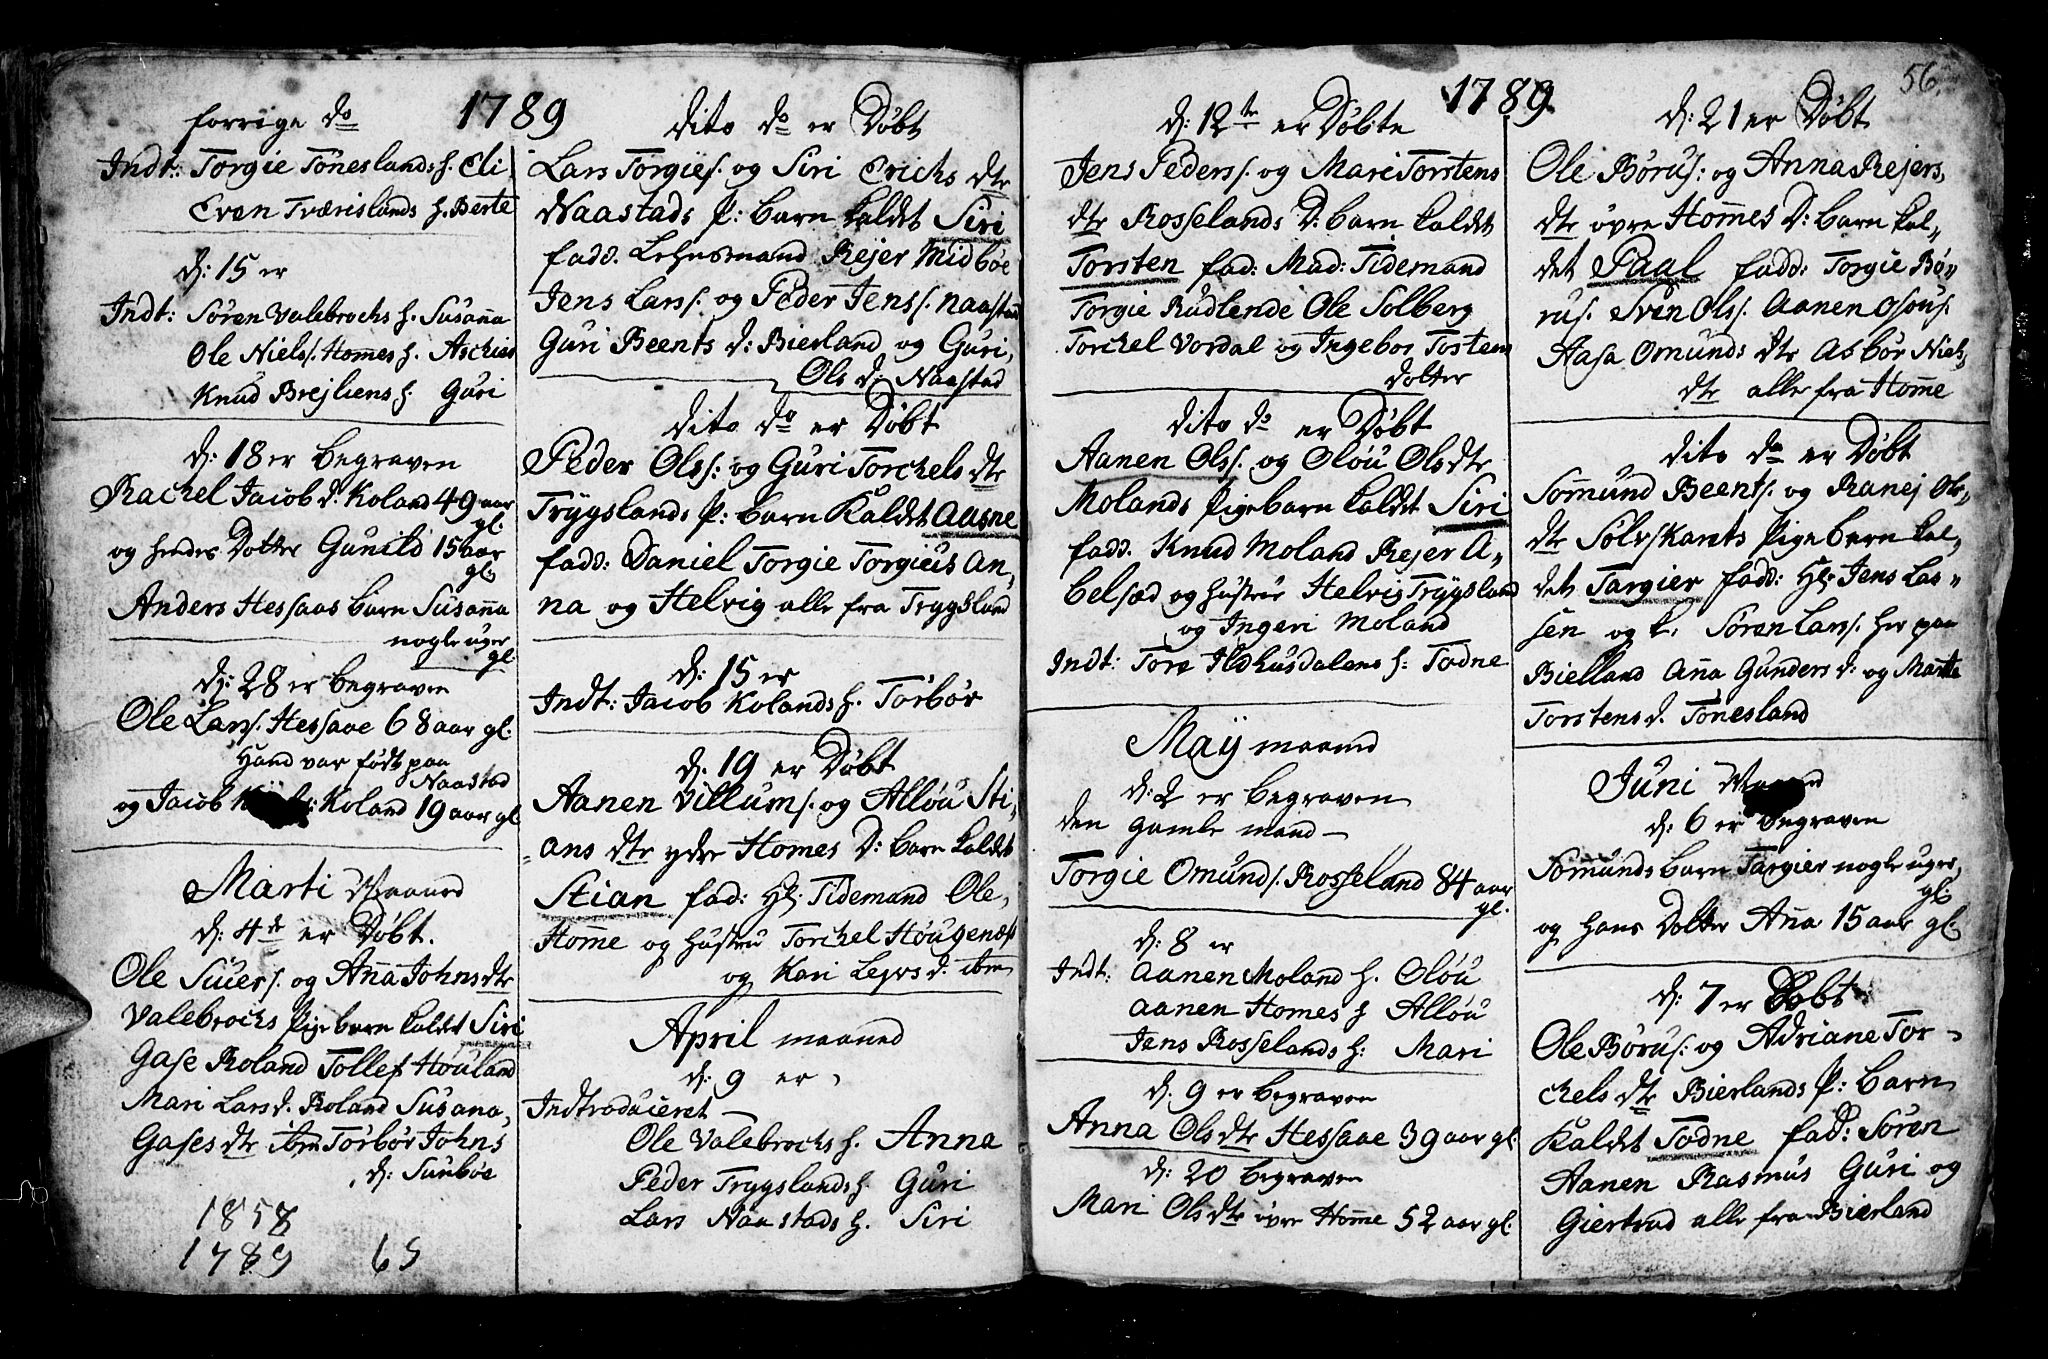 1789
forrige do
Indt: Torgie Tönneslands h. Eli
Even Tværislands h. Berte
d: 15 er
Indt: Sören Valebrochs h. Susaña
Ole Niels: Hom̃es h.
Knud Brejliens h. Guri
d: 18 er begraven
Rachel Jacob d. Koland 49 aar
gl:
og hendes Dotter Gunild 15 aar
gl:
Anders Hessaas barn Susaña
nogle uger
gl
d: 28 er begraven
Ole Lars. Hessaae 68 aar gl:
Hand var født paa
Naastad
og Jacob Koland 19 aar gl
Marti Maaned
d: 4de er Døbt.
Ole Siuers. og Aña Johns dtr
Valebrochs Pigebarn kaldet Siri
Gase Roland Tollef Höuland
Mari Lars d. Roland Susana,
Gases dtr ibm Torbør Johns
d: Sunbøe
1858
1789 69
dito do er Døbt
Lars Torgies. og Siri Erichs dtr
Naastads P: barn kaldet Siri
fadd. Lehnsmand Rejer Midbøe
Jens Lars. og Peder Jens. Naastad
Guri Beents d: Bierland og Guri,
Ols d: Naastad
dito do er Døbt
Peder Ols: og Guri Torchels dtr
Trÿgslands P: barn Kaldet Aasne
fadd: Daniel Torgie Torgius An,
na og Helvig alle fra Trygsland
d: 15 er
Indt: Jacob Kolands h. Torbør
d. 19 er Døbt
Aanen Villums. og Alløu Sti,
ans dtr ydre Homes D: barn kaldet
Stian fad: Hr: Tidemand Ole,
Hom̃e og hustru Torchel Höugenes
og Kari d. ibm
April maaned
d: 9 er
Indtroduceret
Ole Valebrochs h. Anna
Peder Trygslands h. Guri
Lars Naastads h. Siri
1789.
d: 12te er Døbte
Jens Peders. og Mari Torstens
dtr Rosselands D: barn kaldet
Torsten fad: Mad: Tidemand
Torgie Rudlende Ole Solberg
Torchel Vordal og Ingebor Tostens
dotter
dito do er Døbt
Aanen Ols. og Oløu Ols dtr
Molands Pigebarn kaldet Siri
fadd. Knud Moland Rejer A,
belsæd og hustrue Helvig Trÿgsland
og Ingeri Moland
Indt: Tore Ildhusdalens h: Todne
Maÿ maaned
d: 2 er begraven
den gamle mand
Torgie Omunds. Rosseland 84 aar
gl.
d: 8 er
Indt: Aanen Moland h. Oløu
Aanen Homes h Alløu
Jens Rosselands h: Mari
d. 9 er begraven
Anna Ols dtr Hessaae 39 aar gl:
d: 20 begraven
Mari Ols dtr övre Hom̃e 52 aar gl:
56.
d: 21 er Døbt
Ole Børus: og Anna Rejers,
dtr övre Hom̃es D: barn kal,
det Paal fadd: Torgie Bø,
rus. Sven Ols. Aanen Osous.
Aasa Omunds dtr Asbør Niels,
dtr alle fra Hom̃e
dito do er Døbt
Som̃und Beents. og Ranej Ols,
dtr Sölvskants Pigebarn kal,
det Targier fadd: Hr: Jens Las,
sen og Sören Lars. her paa
Bielland Aña Gunders d: og Marta
Torstens d. Tönesland
Juni Maaned
d: 6 er begraven
Somunds barn Targier nogle uger
gl:
og hans Dotter Aña 15 aar gl:
d: 7 er Døbt
Ole Børus: og Adriane Tor,
chels dtr Bierlands P: barn
Kaldet Todne fad: Sören
Aanen Rasmus Guri og
Giertrud alle fra Bierland